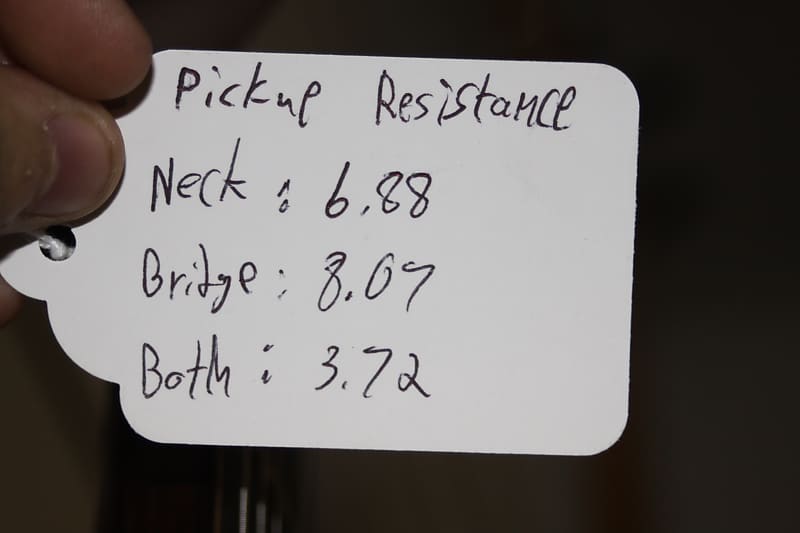 Pickup Resistance
Neck: 6.88
Bridge: 8.07
Both: 3.72